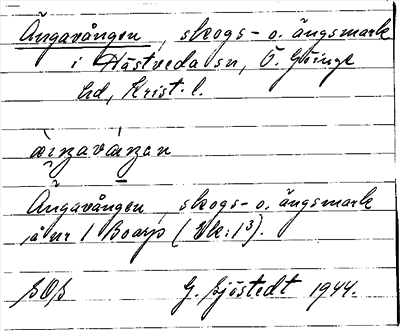 Ängavången, skogs- o. ängsmark
i Hästveda sn, Ö. Göinge
hd, Krist. l.
Ängavången, skogs- o. ängsmark
å nr 1 Boarp (Vk: 1³).
SOS G. Sjöstedt 1944.